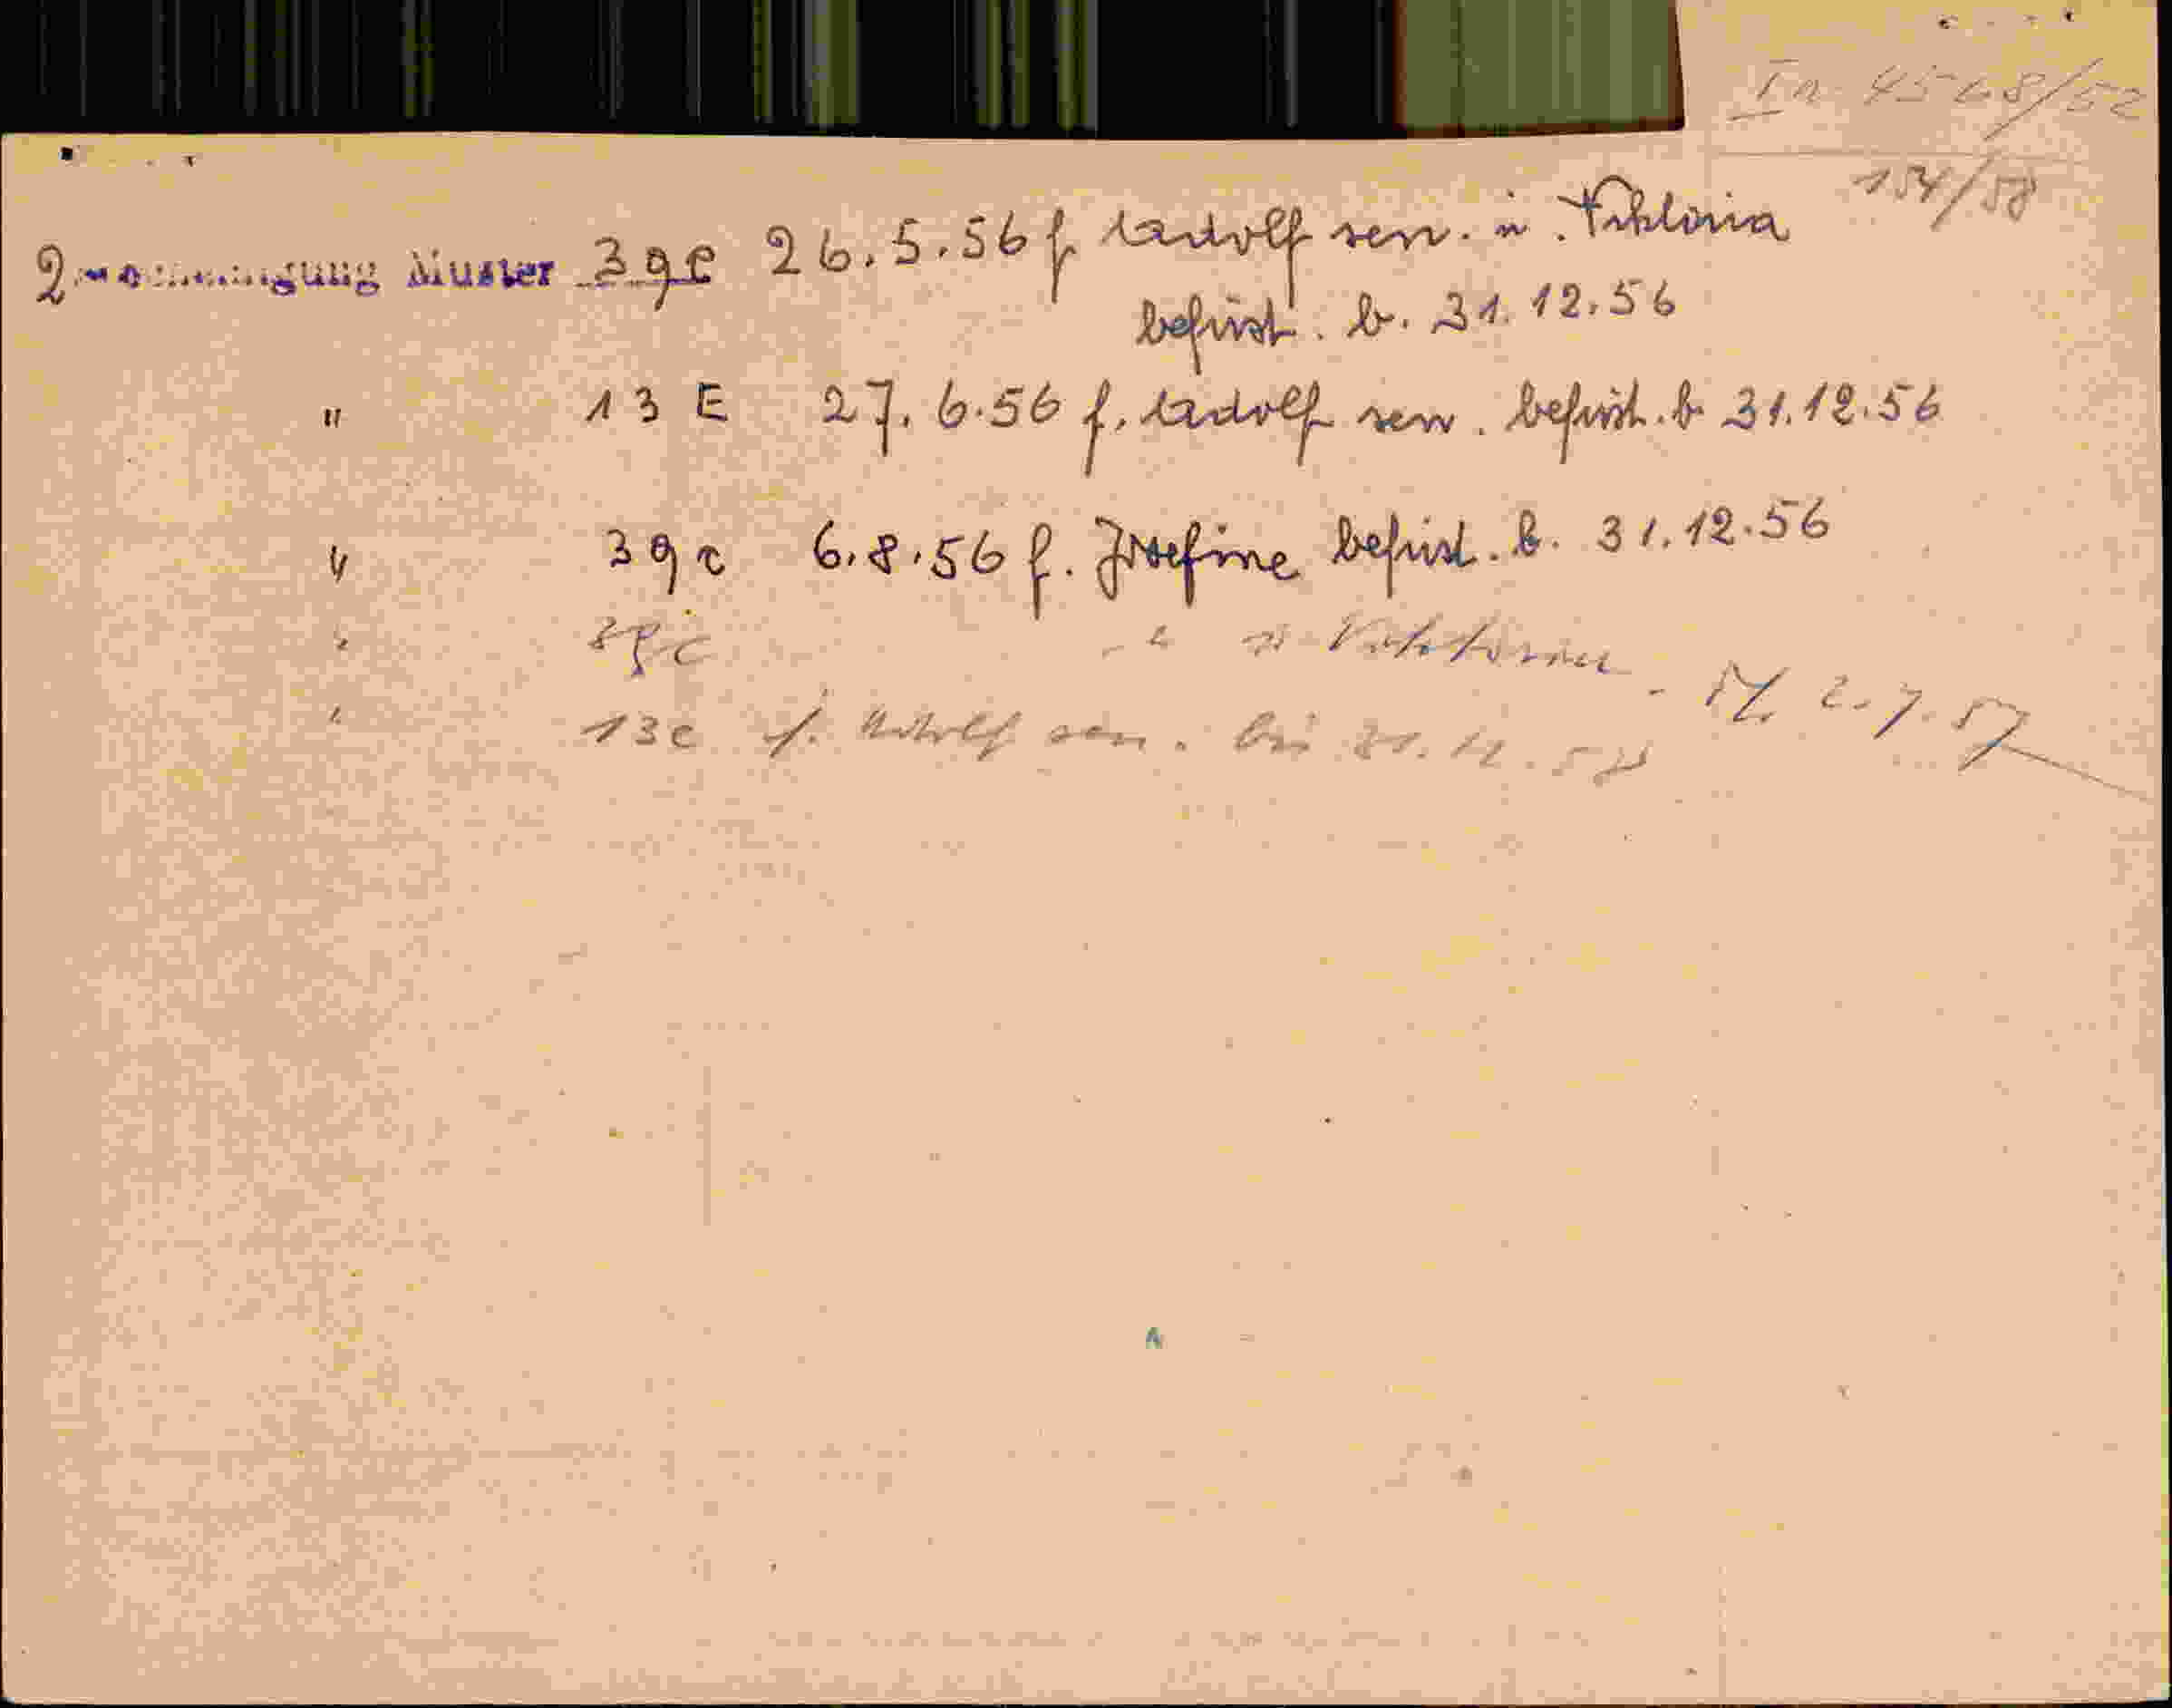 Ia 4568/52
154/58
2. Bescheinigung Muster 39c 26.5.56 f Adolf sen. u. Viktoria
befrist. b. 31.12.56
" 13 E 27.6.56 f. Adolf sen. befrist. b. 31.12.56
" 39c 6.8.56 f. Josefine befrist. b. 31.12.56
" 39c - " u Viktoria - 2.7.57
" 13c f. Adolf sen. bis 31.12.